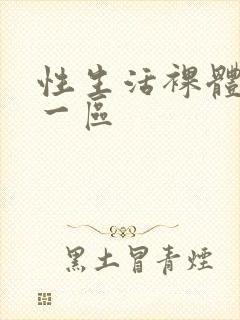 性生活裸體
一區
黑土冒青煙